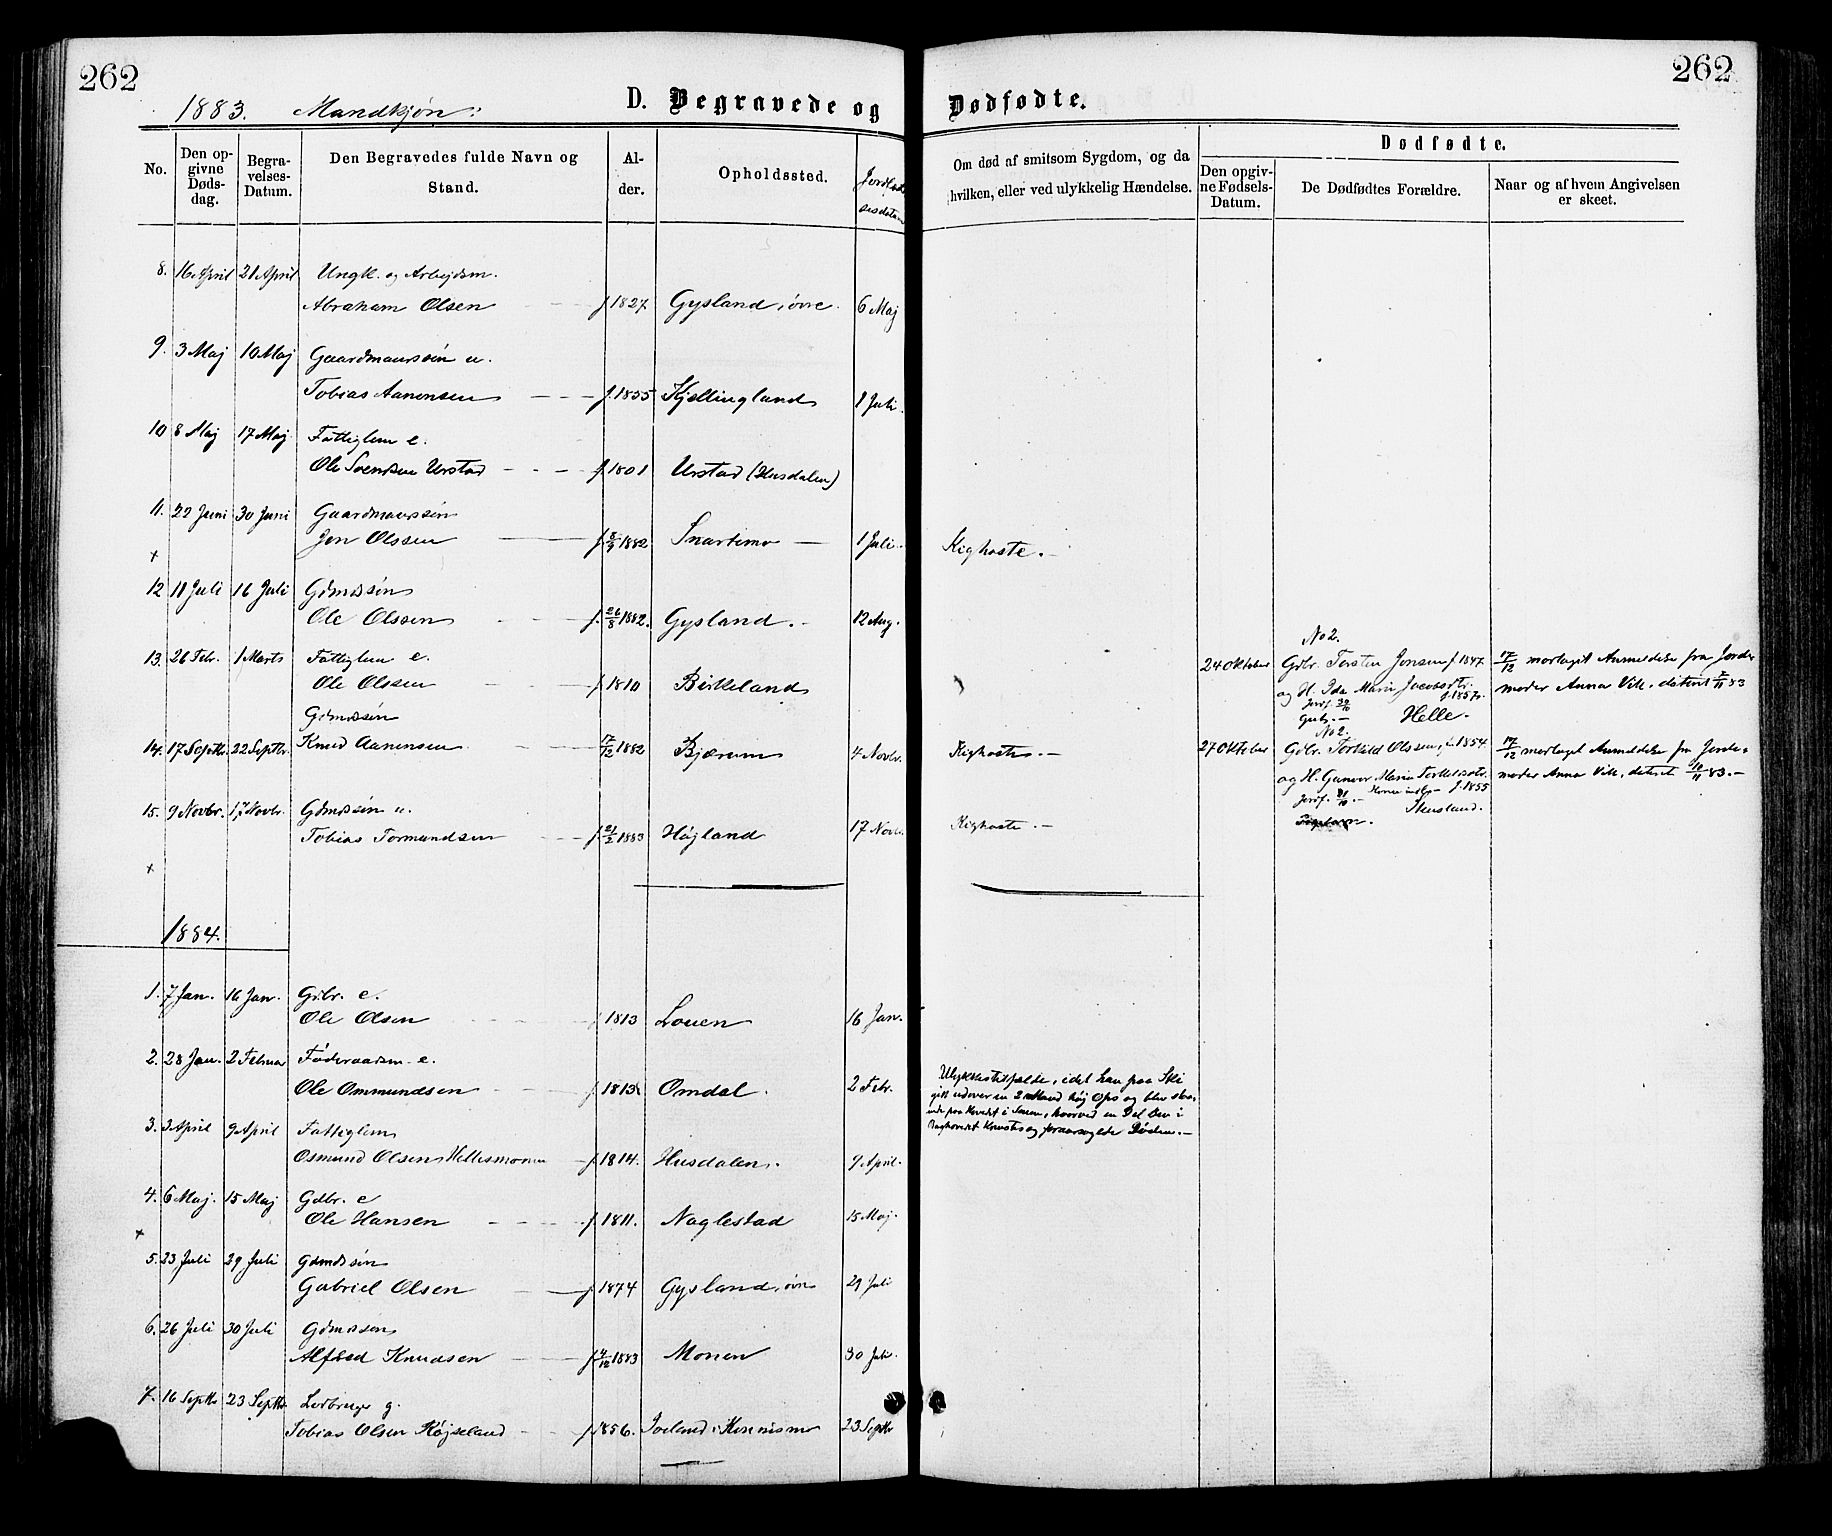 262
262
1883. Mandkjøn:
D. Begravede og Dødfødte.
No.
Den opgivne Dødsdag.
Begravelses-Datum.
Den Begravedes fulde Navn og Stand.
Alder.
Opholdssted.
Om død af smitsom Sygdom, og da hvilken, eller ved ulykkelig Hændelse.
Dødfødte.
Den opgivne Fødsels-Datum.
De Dødfødtes Forældre.
Naar og af hvem Angivelsen er skeet.
8. 16 April 21 April Ungk. og Arbejdsm.
Abraham Olsen f. 1827. Gysland, øvre. 6 Maj
9. 3 Maj 10 Maj Gaardmandssøn u.
Tobias Aanensen f. 1855 Kjellingland 1 Juli.
10 8 Maj 17 Maj Fattiglem e.
Ole Svendsen Urstad f. 1801 Urstad (Husdalen)
11. 22 Juni 30 Juni Gaardmandssøn
Jon Olssen f. 8/9 1882 Snartemo 1 Juli. Kighoste.
12 11 Juli 16 Juli Gdmdssøn
Ole Olssen f. 26/8 1882. Gysland. 12 Aug.
13. 26 Febr. 1 Marts Fattiglem e.
Ole Olssen f. 1810 Birkeland
Gdmdssøn
14. 17 Septbr. 22 Septbr. Knud Aanensen 17/12 1882 Bjærum 4 Novbr. Kighoste.
15. 9 Novbr. 17 Novbr. Gdmdssøn u.
Tobias Tormundsen f. 21/2 1883 Højland 17 Novb. Kighoste.
No 2.
24 Oktober Gdbr. Torsten Jonsen f. 1847. 17/12 modtaget Anmeldelse fra Jorde
og H. Ida Marie Jacobsdtr. f. 1857. moder Anna Vik, dateret 2/11 83
Helle.
No 2.
27 Oktober Gdbr. Torkild Olssen, f. 1854. 17/12 modtaget Anmeldelse fra Jorde
og H. Gunvor Marie Torkelsdtr. f. 1855 moder Anna Vik, dateret 10/11 83.
Skusland.
1884.
1. 7 Jan. 16 Jan. Gdbr. e.
Ole Olsen f. 1813 Louen 16 Jan.
2. 28 Jan. 2 Februar Føderaadsm. e.
Ole Ommundsen f. 1813 Omdal. 2 Febr.
Ulykkestilfælde, idet han paa Ski
gik udover en 2 Mand høj Ops og blev staa
ende paa Hovedet i Sneen, hvorved en Del Ben i
Baghovedet knustes og foraarsagede Døden.
3. 3 April 9 April Fattiglem
Osmund Olsen Hellesmoren f. 1814. Husdalen. 9 April.
4. 6 Maj. 15 Maj Gdbr. e
Ole Hansen f. 1811. Naglestad 15 Maj.
5. 23 Juli 29 Juli Gdmdssøn
Gabriel Olsen f. 1874 Gysland, øvre 29 Juli
6. 26 Juli 30 Juli Gdmdssøn
Alfred Knudsen f. 4/12 1883 Monen 30 Juli.
7. 16 Septbr 23 Septbr. Ledbruger g.
Tobias Olsen Højseland f. 1856. Joeland i Konnismo 23 Septbr